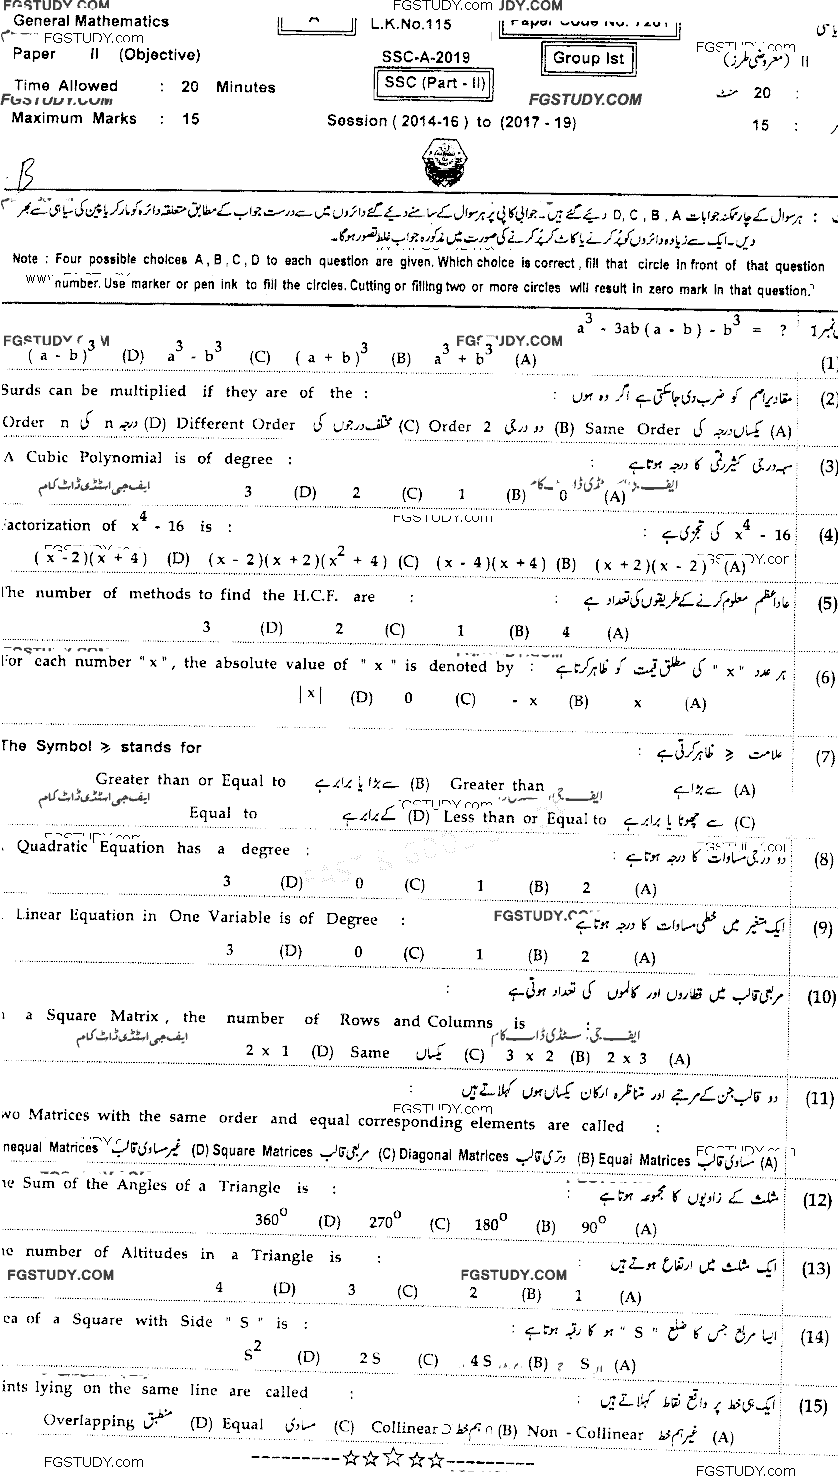 FGSTUDY.COM FGSTUDY.com JDY.COM
General Mathematics A L.K.No.115 Paper Code No. 7201
FGSTUDY.com
Paper II (Objective) SSC-A-2019 Group Ist FGSTUDY.com II (معروضی طرز)
Time Allowed : 20 Minutes SSC (Part - II) 20 منٹ :
FGSTUDY.COM FGSTUDY.COM
Maximum Marks : 15 Session ( 2014-16 ) to (2017 - 19) 15 :
B
: ہر سوال کے چار ممکنہ جوابات D, C, B, A دیئے گئے ہیں۔ جوابی کاپی پر ہر سوال کے سامنے دیئے گئے دائروں میں سے درست جواب کے مطابق متعلقہ دائرہ کو مارکر یا پین کی سیاہی سے بھر
دیں۔ ایک سے زیادہ دائروں کو پُر کرنے یا کاٹ کر پُر کرنے کی صورت میں مذکورہ جواب غلط تصور ہوگا۔
Note : Four possible choices A, B, C, D to each question are given. Which choice is correct, fill that circle in front of that question
number. Use marker or pen ink to fill the circles. Cutting or filling two or more circles will result in zero mark in that question.
a³ - 3ab ( a - b ) - b³ = ?
FGSTUDY.COM
( a - b )³ (D) a³ - b³ (C) ( a + b )³ (B) a³ + b³ (A) (1)
Surds can be multiplied if they are of the : مقادیر اصم کو ضرب دی جا سکتی ہے اگر وہ ہوں : (2)
Order n درجہ n کی (D) Different Order مختلف درجوں کی (C) Order 2 دو درجی (B) Same Order یکساں درجہ کی (A)
A Cubic Polynomial is of degree : سہ درجی کثیر رقمی کا درجہ ہوتا ہے : (3)
ایف جی اسٹڈی ڈاٹ کام 3 (D) 2 (C) 1 (B) 0 (A)
FGSTUDY.com
actorization of x⁴ - 16 is : x⁴ - 16 کی تجزی ہے : (4)
( x - 2 )( x + 4 ) (D) ( x - 2 )( x + 2 )( x² + 4 ) (C) ( x - 4 )( x + 4 ) (B) ( x + 2 )( x - 2 ) (A)
The number of methods to find the H.C.F. are : عاداعظم معلوم کرنے کے طریقوں کی تعداد ہے : (5)
3 (D) 2 (C) 1 (B) 4 (A)
For each number "x", the absolute value of " x " is denoted by : ہر عدد "x" کی مطلق قیمت کو ظاہر کرتا ہے (6)
|x| (D) 0 (C) - x (B) x (A)
The Symbol ⩾ stands for علامت ⩾ ظاہر کرتی ہے : (7)
Greater than or Equal to سے بڑا یا برابر ہے (B) Greater than سے بڑا ہے (A)
ایف جی اسٹڈی ڈاٹ کام
Equal to کے برابر ہے (D) Less than or Equal to سے چھوٹا یا برابر ہے (C)
FGSTUDY.com
Quadratic Equation has a degree : دو درجی مساوات کا درجہ ہوتا ہے : (8)
3 (D) 0 (C) 1 (B) 2 (A)
Linear Equation in One Variable is of Degree : ایک متغیر میں خطی مساوات کا درجہ ہوتا ہے (9)
3 (D) 0 (C) 1 (B) 2 (A)
مربعی قالب میں قطاروں اور کالموں کی تعداد ہوتی ہے : (10)
a Square Matrix, the number of Rows and Columns is :
ایف جی اسٹڈی ڈاٹ کام
2 x 1 (D) Same یکساں (C) 3 x 2 (B) 2 x 3 (A)
دو قالب جن کے مرتبے اور متناظرہ ارکان یکساں ہوں کہلاتے ہیں : (11)
FGSTUDY.com
wo Matrices with the same order and equal corresponding elements are called :
nequal Matrices غیر مساوی قالب (D) Square Matrices مربعی قالب (C) Diagonal Matrices وتری قالب (B) Equal Matrices مساوی قالب (A)
he Sum of the Angles of a Triangle is : مثلث کے زاویوں کا مجموعہ ہوتا ہے : (12)
360° (D) 270° (C) 180° (B) 90° (A)
he number of Altitudes in a Triangle is : ایک مثلث میں ارتفاع ہوتے ہیں : (13)
FGSTUDY.COM FGSTUDY.COM
4 (D) 3 (C) 2 (B) 1 (A)
ea of a Square with Side " S " is : ایسا مربع جس کا ضلع "S" ہو کا رقبہ ہوتا ہے : (14)
S² (D) 2 S (C) 4 S (B) S (A)
ints lying on the same line are called : ایک ہی خط پر واقع نقاط کہلاتے ہیں : (15)
Overlapping منطبق (D) Equal مساوی (C) Collinear ہم خط (B) Non - Collinear غیر ہم خط (A)
---------☆☆☆☆☆---------
FGSTUDY.com FGSTUDY.com